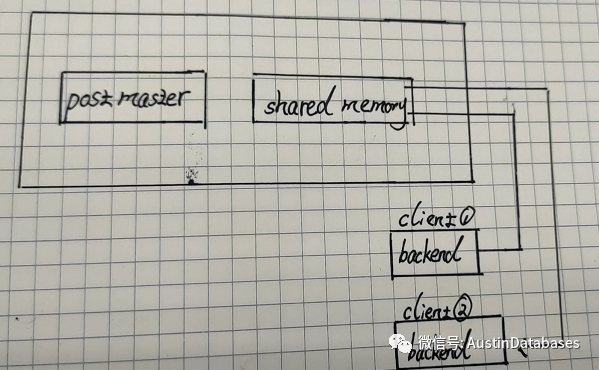 postmaster
shared memory
client①
backend
client②
backend
微信号: AustinDatabases